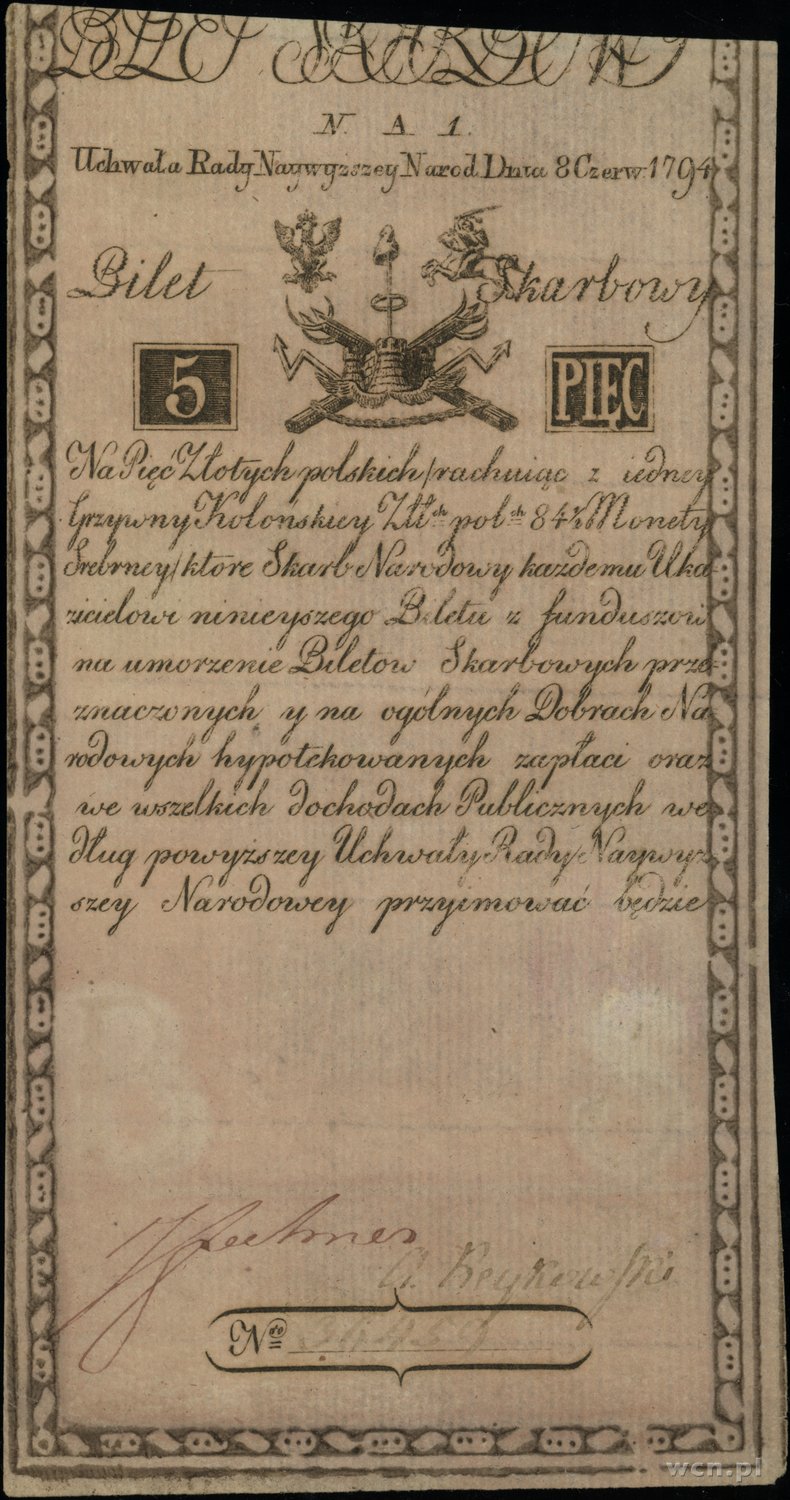 N. A 1.
Uchwała Rady Naywyzszey Narod Dnia 8 Czerw: 1794
Bilet Skarbowy
5 PIĘĆ
Na Pięć Złotych polskich /rachuiąc z iedney
Grzywny Kolonskiey Złł ch pol ch 84½ Monety
Srebrney/ ktore Skarb Narodowy każdemu Uka
zicielowi ninieyszego Biletu z funduszow
na umorzenie Biletow Skarbowych prze
znaczonych y na ogólnych Dobrach Na
rodowych hypotekowanych zapłaci oraz
we wszelkich dochodach Publicznych we
dług powyższey Uchwały Rady Naywyż
szey Narodowey przyimować będzie
A. Reykowski
No
wcn.pl